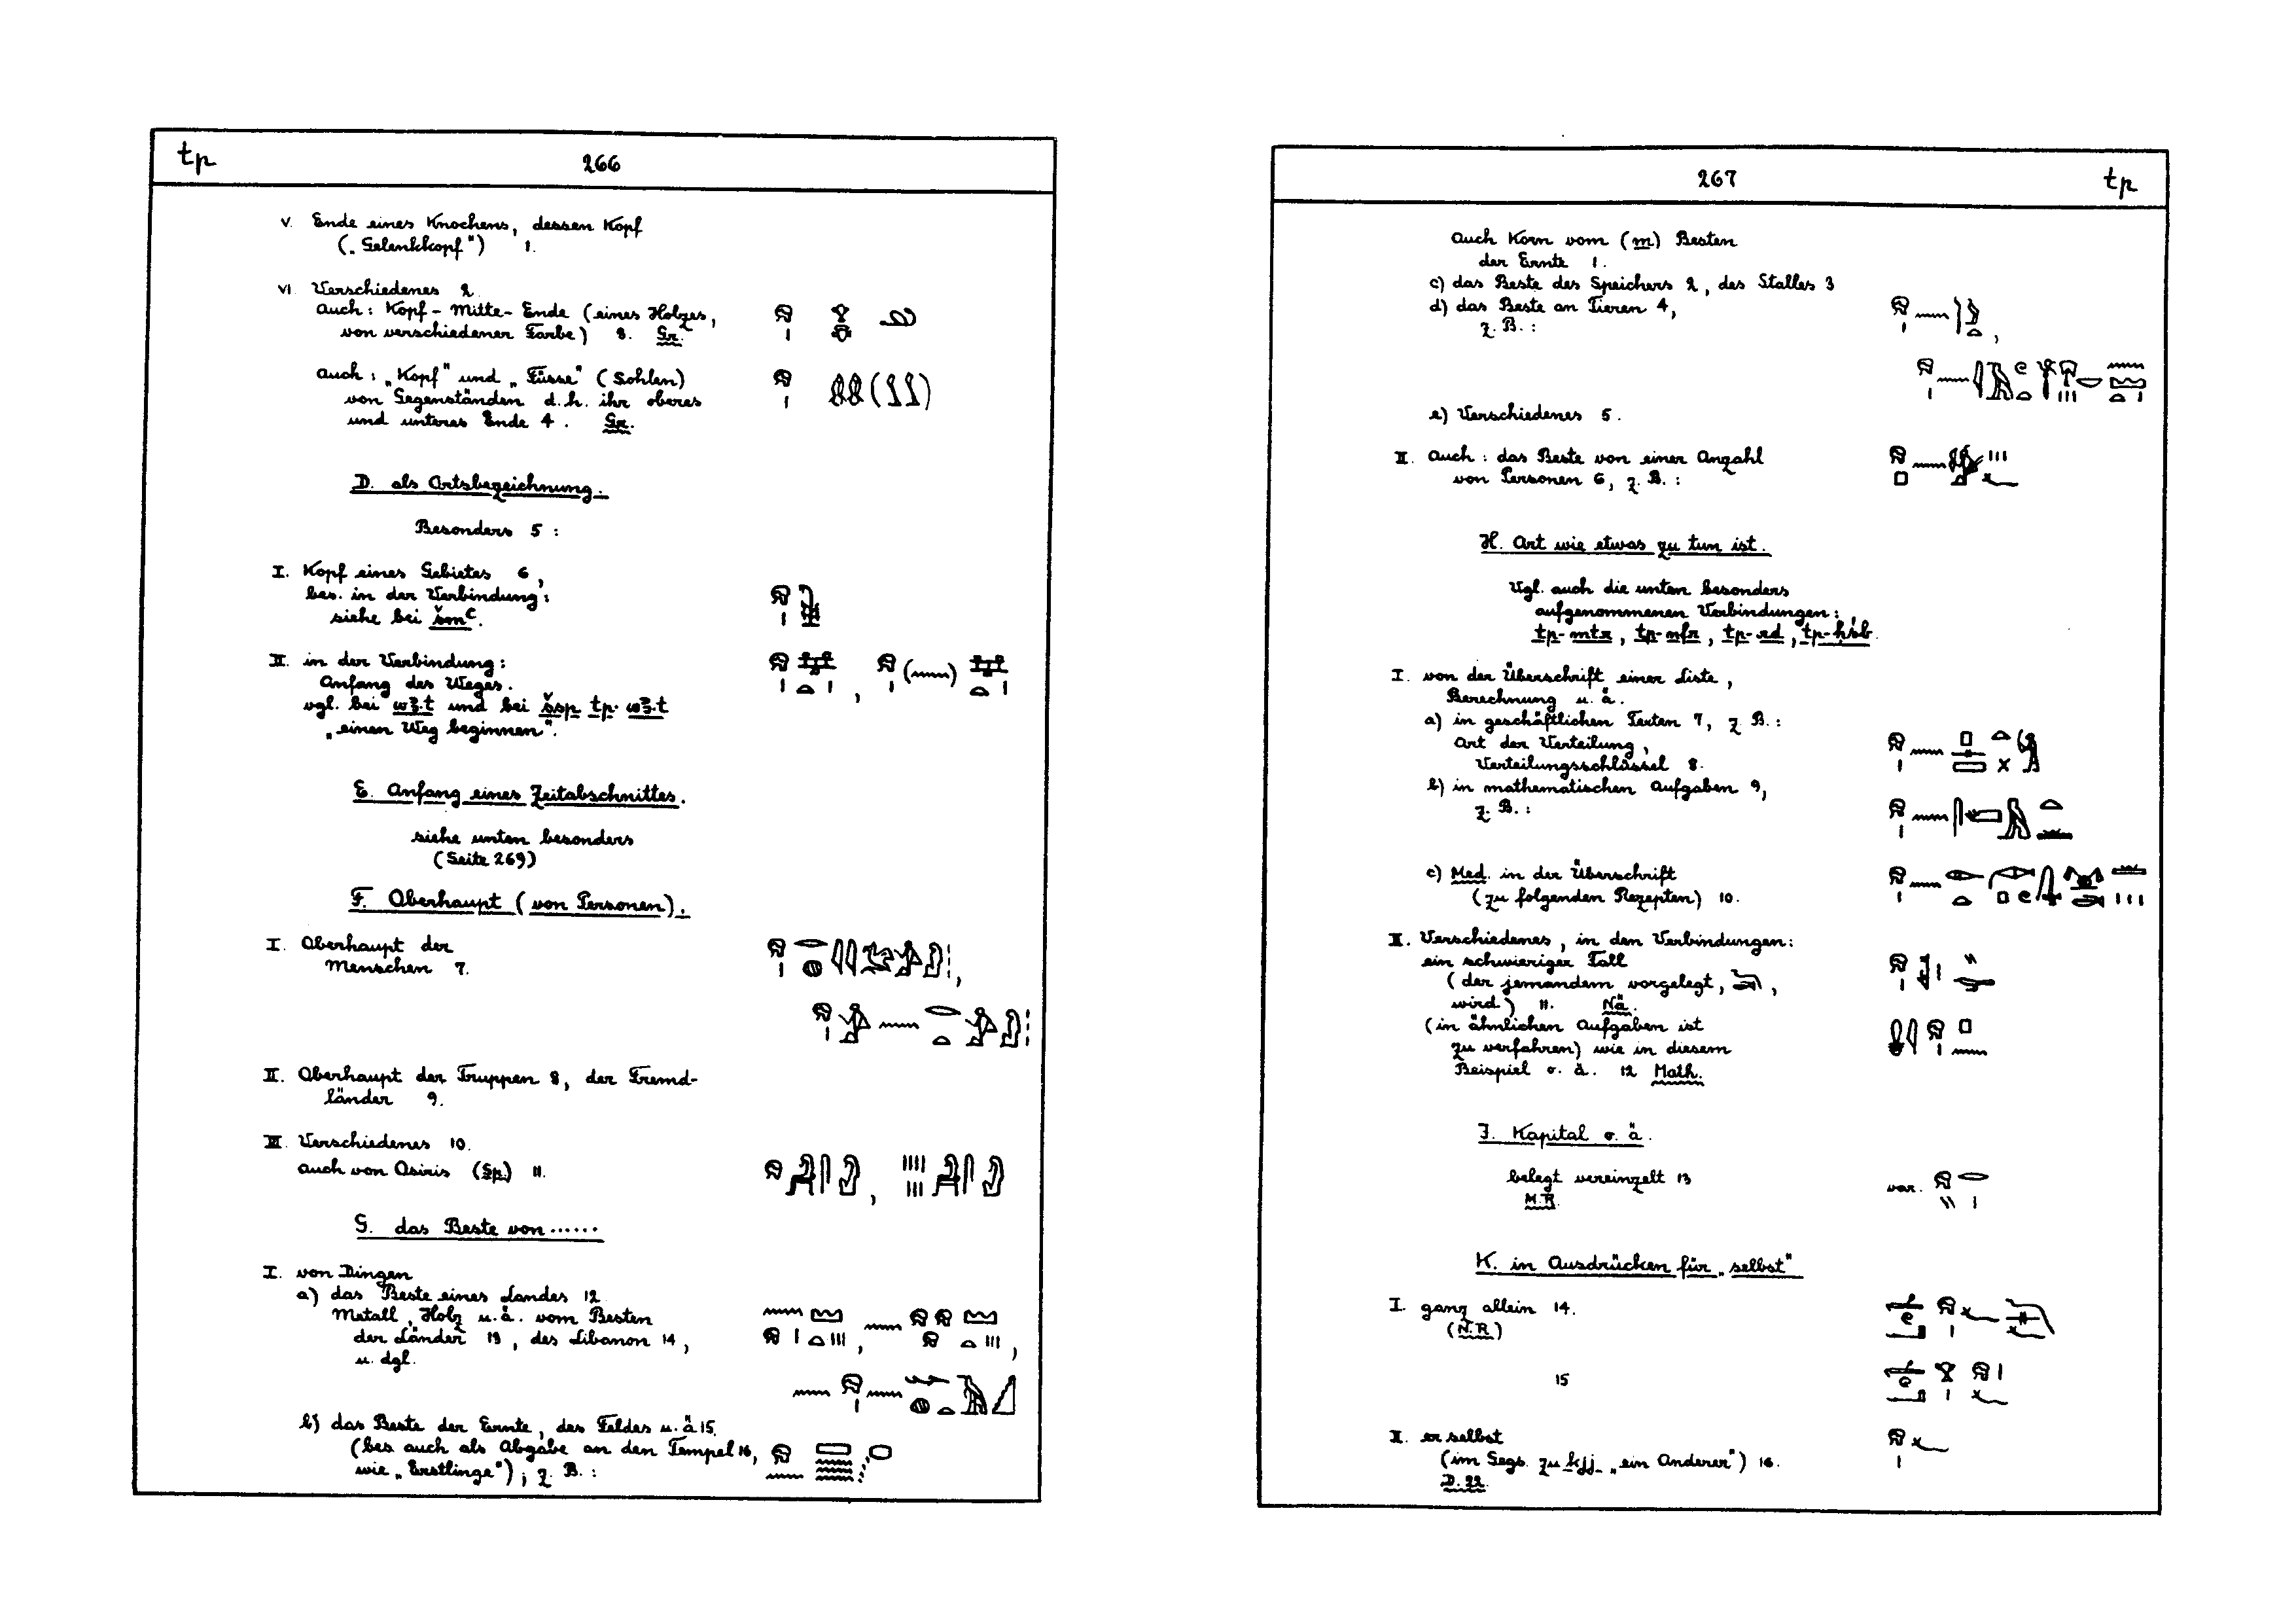 tp 266
V. Ende eines Knochens, dessen Kopf
(„Gelenkkopf") 1.
VI. Verschiedenes 2.
Auch: Kopf - Mitte - Ende (eines Holzes,
von verschiedener Farbe) 3. Gr.
Auch: „Kopf" und „Füsse" (Sohlen)
von Gegenständen d.h. ihr oberes
und unteres Ende 4. Gr.
D. als Ortsbezeichnung.
Besonders 5:
I. Kopf eines Gebietes 6,
bes. in der Verbindung:
siehe bei šmꜥ.
II. in der Verbindung:
Anfang des Weges.
vgl. bei wꜣ.t und bei šsp tp-wꜣ.t
„einen Weg beginnen".
E. Anfang eines Zeitabschnittes.
siehe unten besonders
(Seite 269)
F. Oberhaupt (von Personen).
I. Oberhaupt der
Menschen 7.
II. Oberhaupt der Truppen 8, der Fremd-
länder 9.
III. Verschiedenes 10.
auch von Osiris (Sp.) 11.
G. das Beste von ......
I. von Dingen
a) das Beste eines Landes 12
Metall, Holz u.ä. vom Besten
der Länder 13, des Libanon 14,
u. dgl.
b) das Beste der Ernte, des Feldes u.ä 15.
(bes auch als Abgabe an den Tempel 16,
wie „Erstlinge"); z. B.:
267 tp
Auch Korn vom (m) Besten
der Ernte 1.
c) das Beste des Speichers 2, des Stalles 3
d) das Beste an Tieren 4,
z. B.:
e) Verschiedenes 5.
II. Auch: das Beste von einer Anzahl
von Personen 6, z. B.:
H. Art wie etwas zu tun ist.
Vgl. auch die unten besonders
aufgenommenen Verbindungen:
tp-mtr, tp-nfr, tp-rd, tp-ḥśb.
I. von der Überschrift einer Liste,
Berechnung u. ä.
a) in geschäftlichen Texten 7, z. B.:
Art der Verteilung,
Verteilungsschlüssel 8.
b) in mathematischen Aufgaben 9,
z. B.:
c) Med. in der Überschrift
(zu folgenden Rezepten) 10.
II. Verschiedenes, in den Verbindungen:
ein schwieriger Fall
(der jemandem vorgelegt, ,
wird) 11. Nä.
(in ähnlichen Aufgaben ist
zu verfahren) wie in diesem
Beispiel o. ä. 12 Math.
J. Kapital o. ä.
belegt vereinzelt 13 var.
M.R.
K. in Ausdrücken für „selbst"
I. ganz allein 14.
(N.R)
15
II. er selbst
(im Gegs. zu kjj „ein Anderer") 16.
D. 22.